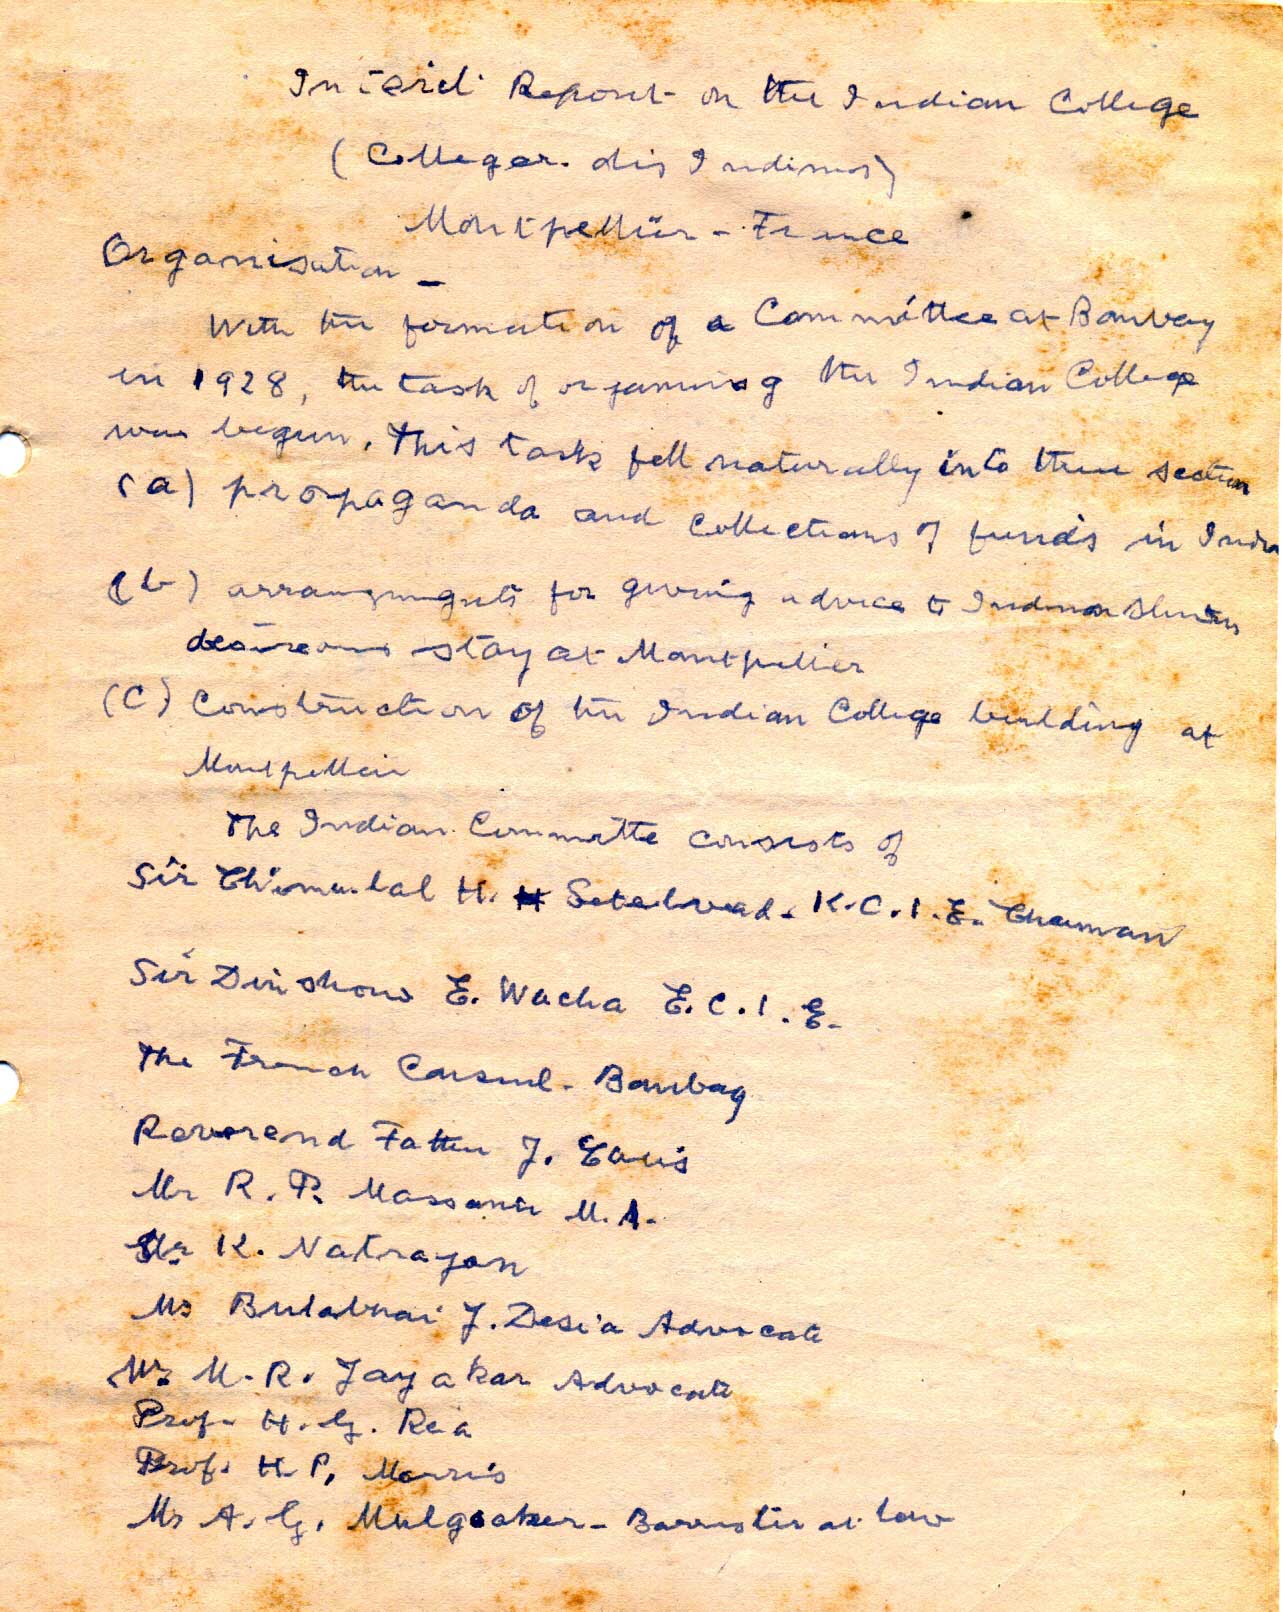 Report on the Indian College
(College. des Indiens)
Montpellier - France
Organisation -
With the formation of a Committee at Bombay
in 1928, the task of organising the Indian College
was begun. This task fell naturally into three section
(a) propaganda and collections of funds in India
(b) arrangements for giving advice to Indian
desireous stay at Montpellier
(C) Construction of the Indian College building at
Montpellier
The Indian Committe consists of
Sir Chimanlal H. Setalvad - K.C.I.E. Chairman
Sir Dinshow E. Wacha E.C.I.E.
The French Consul - Bombay
Reverend Father J.
Mr R. P. Massani M.A.
Mr K. Natrajan
Mr Bulabhai J. Desia Advocate
Mr M. R. Jayakar Advocate
Prof. H. G.
Prof. H. P. Morris
Mr A. G. Mulgoaker - Barrister at law